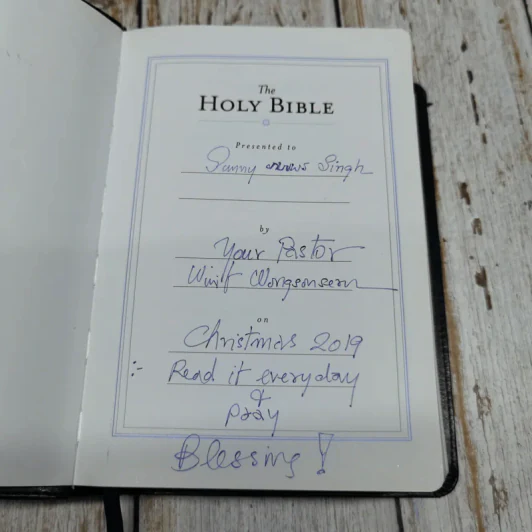 The
HOLY BIBLE
Presented to
Sunny Singh
by
Your Pastor
on
Christmas 2019
:- Read it everyday
&
pray
Blessing!